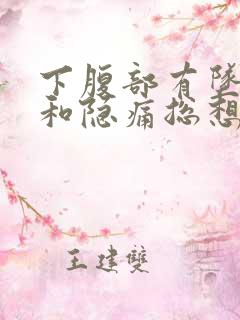 下腹部有队
和隐痛总想
王建双